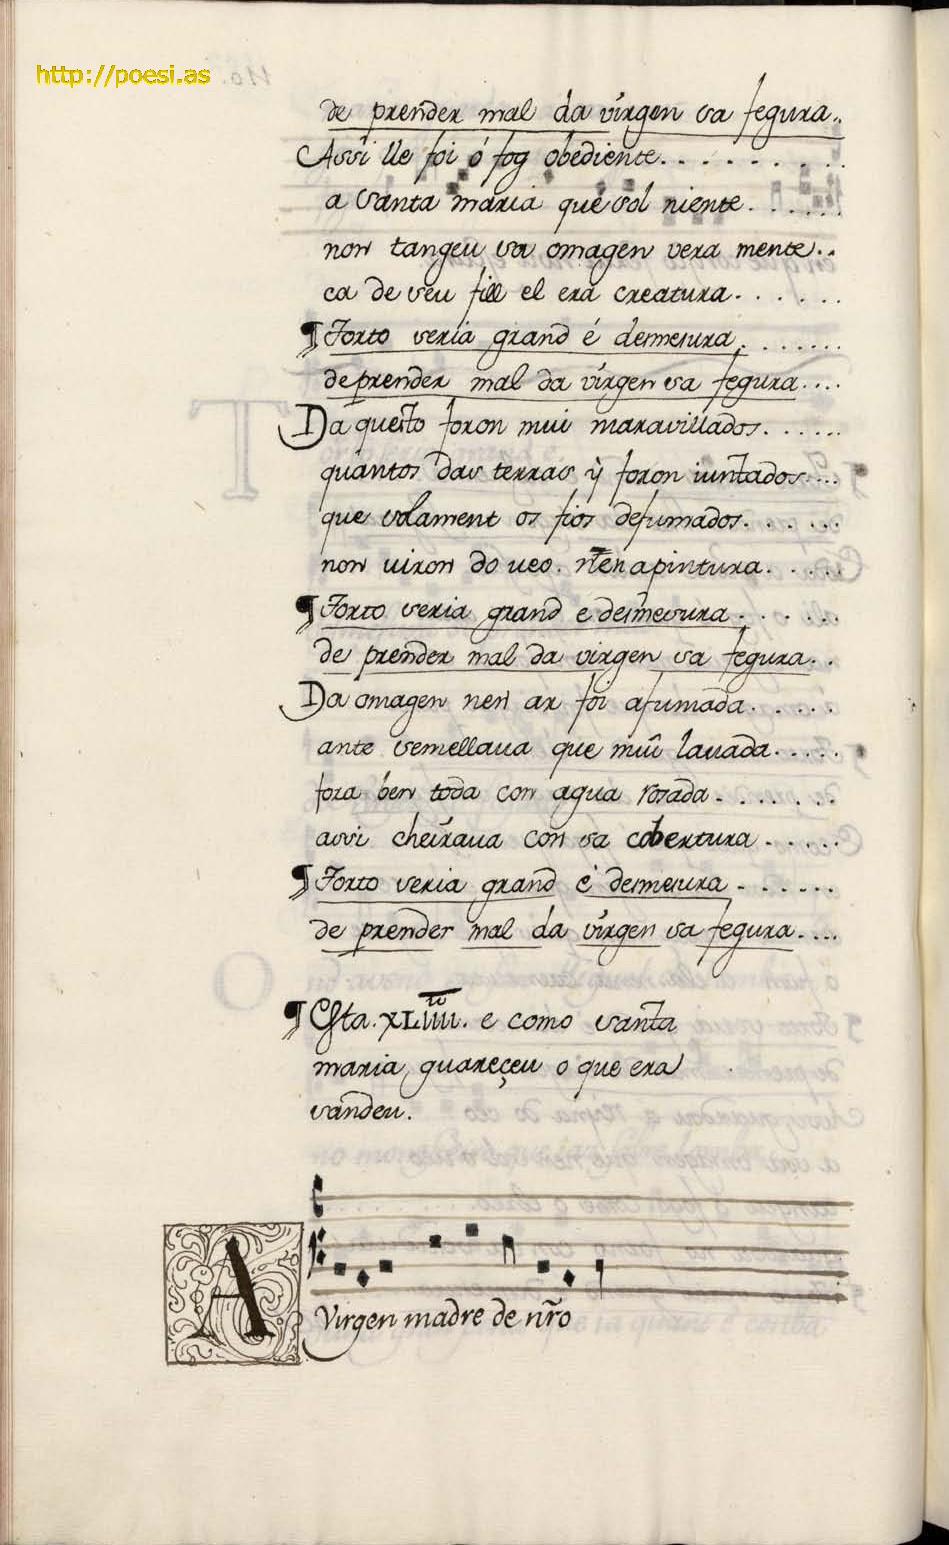 http://poesi.as
de prender mal da virgen sa fegura..
Assi lle foi ó fog obediente. . . . . . . . . .
a santa maria que sol niente. . . . . .
non tangeu sa omagen vera mente. .
ca de seu fill el era creatura. . . . . .
¶ Torto seria grand é desmesura. . . . . . .
de prender mal da virgen sa fegura. . . .
Da questo foron mui maravillados. . . . . .
quantos das terras ẏ foron iuntados. . . .
que solament os fios defumados. . . . . .
non uiron do ueo. nen a pintura. . . . . .
¶ Torto seria grand e desmesura. . . . . . .
de prender mal da virgen sa fegura. .
Da omagen nen ar foi afumada. . . . . .
ante semellaua que mui lauada. . . . . .
fora ben toda con agua rosada. . . . . . .
assi cheiraua con sa cobertura. . . . . .
¶ Torto seria grand é desmesura. . . . . . .
de prender mal da virgen sa fegura. . . .
¶ Esta. XLIIII. e como santa
maria guareçeu o que era
sandeu.
A
Virgen madre de nr̃o